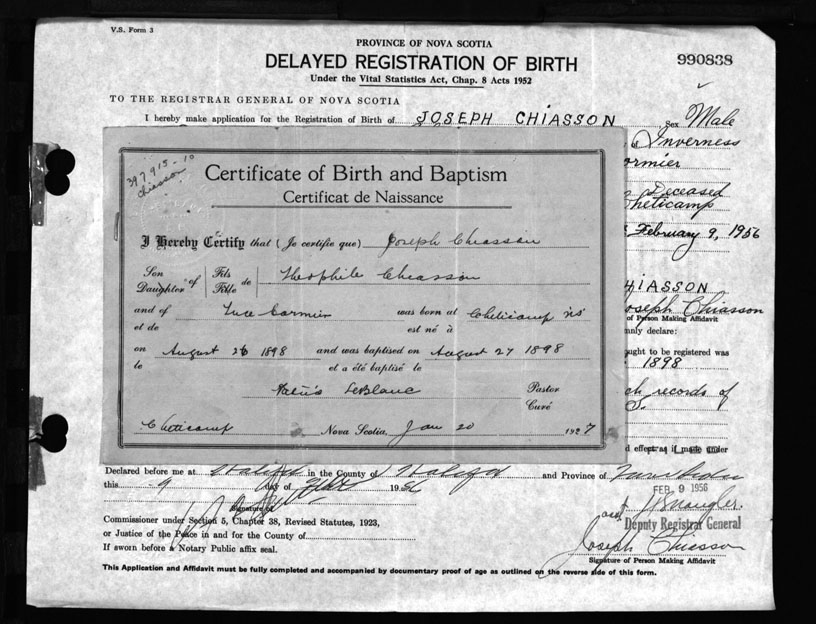 V.S. Form 3
PROVINCE OF NOVA SCOTIA
DELAYED REGISTRATION OF BIRTH
990838
Under the Vital Statistics Act, Chap. 8 Acts 1952
TO THE REGISTRAR GENERAL OF NOVA SCOTIA
I hereby make application for the Registration of Birth of JOSEPH CHIASSON Sex Male
Inverness
ormier
Deceased
heticamp
February 9, 1956
HIASSON
oseph Chiasson
of Person Making Affidavit
nly declare:
ught to be registered was
1898
ch records of
S.
d effect as if made under
397915-10
Chiasson
Certificate of Birth and Baptism
Certificat de Naissance
I Hereby Certify that (Je certifie que) Joseph Chiasson
Son Daughter of Fils Fille de Theophile Chiasson
and of Luce Cormier was born at Cheticamp NS
et de est né à
on August 26 1898 and was baptised on August 27 1898
le et a été baptisé le
LeBlanc Pastor
Curé
Cheticamp Nova Scotia, Jan 20 1927
Declared before me at Halifax in the County of Halifax and Province of Nova Scotia
this 9 day of Feb 1956
FEB 9 1956
Signature of
Deputy Registrar General
Commissioner under Section 5, Chapter 38, Revised Statutes, 1923,
or Justice of the Peace in and for the County of
Joseph Chiasson
If sworn before a Notary Public affix seal.
Signature of Person Making Affidavit
This Application and Affidavit must be fully completed and accompanied by documentary proof of age as outlined on the reverse side of this form.